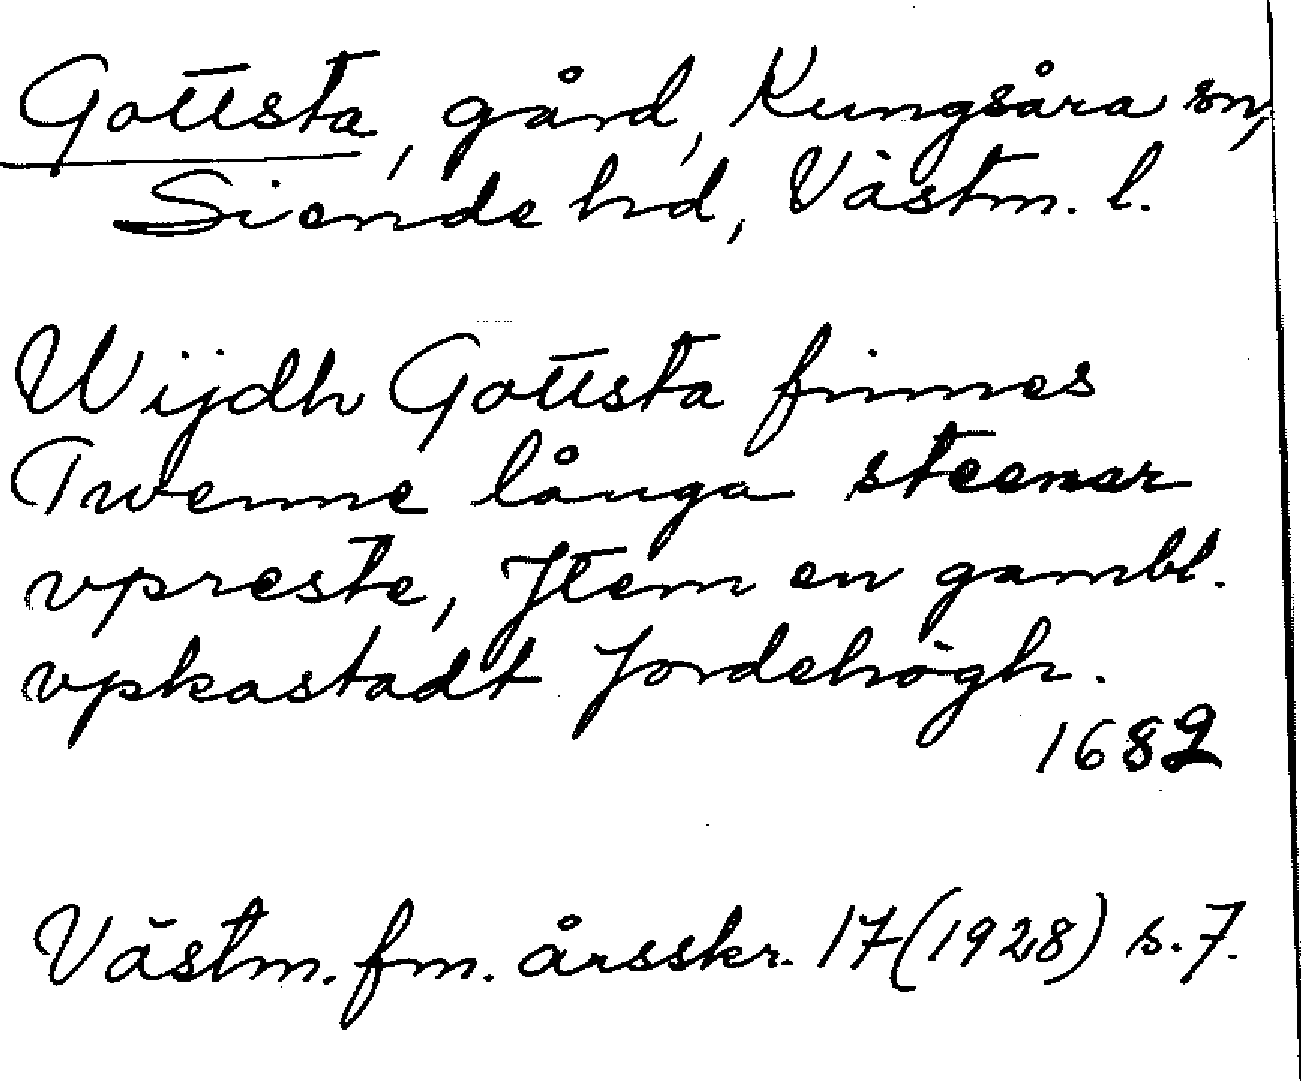 Gottsta, gård, Kungsåra sn,
Siende hd, Västm. l.
Wijdh Gottsta finnes
Twenne långa steenar
vpreste, Jtem en gambl.
vpkastadt Jordehögh.
1682
Västm. fm. årsskr. 17 (1928) s. 7.